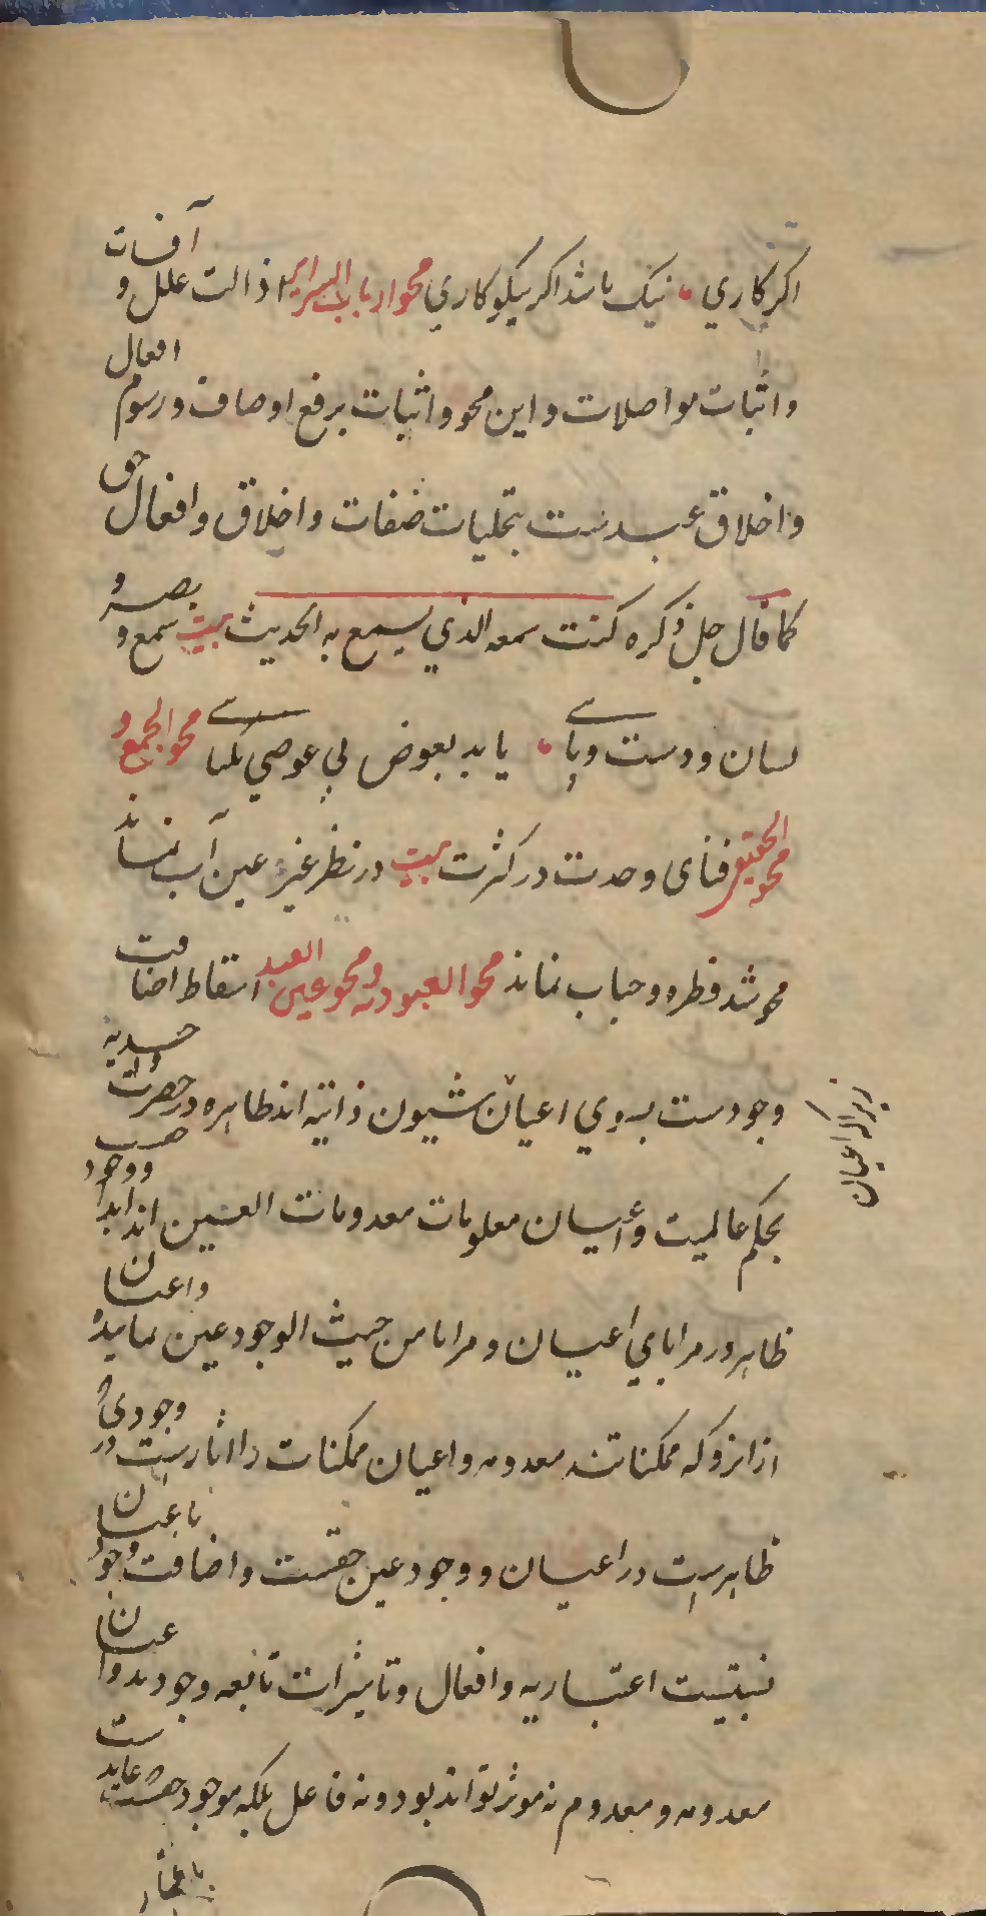 اکر کاري نیک باشد اکر نیکو کاري محو ارباب السرایر ازالت علل و آفات
و اثبات مواصلات و این محو و اثبات برفع اوصاف و رسوم افعال
و اخلاق عبدست بتجلیات صفات و اخلاق و افعال حق
کما قال جل ذکره کنت سمعه الذي یسمع به الحدیث بیت سمع و بصر و
لسان و دست و پاے یابد بعوض لي عوصي محو الجمع و
محو الحقیقي فنای وحدت در کثرت بیت در نظر غیر عین آب نماند
محو شد قطره و حباب نماند محو العبودیه و محو عین العبد اسقاط اضافت
وجودست بسوي اعیان شیون ذاتیه اند ظاهره در حضرت واحدیه
زیرا که اعیان
بحکم عالمیت و اعیان معلومات معدومات العین اند ابدا و وجود حق
ظاهر در مرایاي اعیان و مرایا من حیث الوجود عین نماینده و اعیان
از انرو که ممکناتند معدومه و اعیان ممکنات را اثارست در وجودی که
ظاهرست در اعیان و وجود عین حقست و اضافت وجود باعیان
نسبتیست اعتباریه و افعال و تاثیرات تابعه وجودند و اعیان
معدومه و معدوم نه موثر تواند بود و نه فاعل بلکه موجود حقست عابد
باعتبار